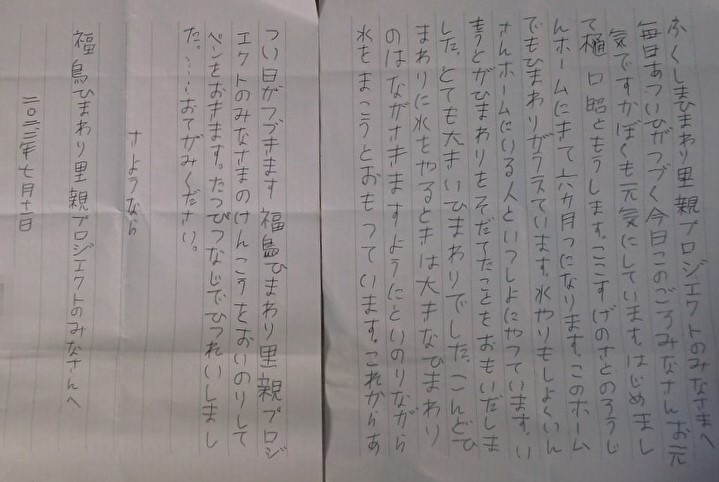 ふくしまひまわり里親プロジェクトのみなさまへ
毎日あついひがつづく今日このごろみなさんお元
気ですかぼくも元気にしています。はじめまし
て樋口昭ともうします。ここすげのさとのろうじ
んホームにきて六カ月つになります。このホーム
でもひまわりがうえています。水やりもしょくいん
さんホームにいる人といつしよにやつています。い
もうとがひまわりをそだてたことをおもいだしま
した。とても大きいひまわりでした。こんどひ
まわりに水をやるときは大きなひまわり
のはながさきますようにといのりながら
水をまこうとおもつています。これからあ
つい日がつづきます 福島ひまわり里親プロジ
エクトのみなさまのけんこうをおいのりして
ペンをおきます。たつぴつなじでひつれいしまし
た。……おてがみください。
さようなら
福島ひまわり里親プロジエクトのみなさんへ
二〇二三年七月十一日